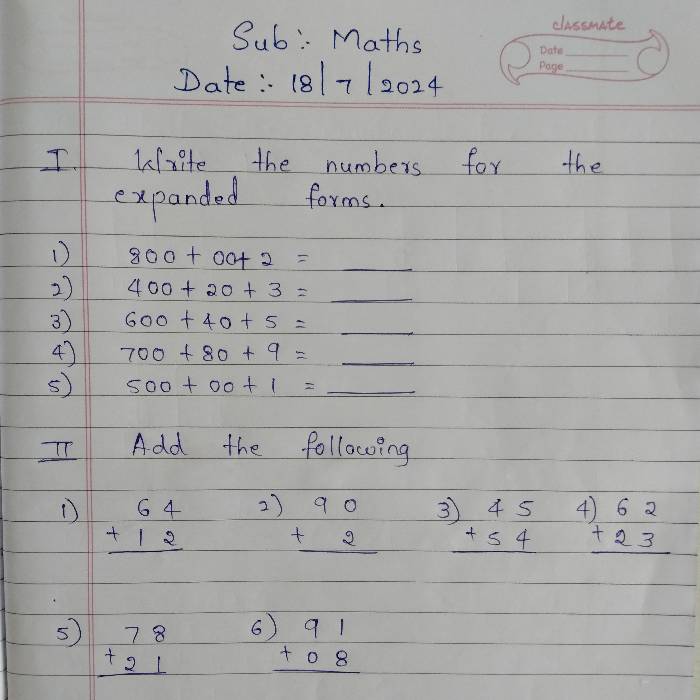 classmate
Sub :- Maths
Date
Page
Date :- 18/7/2024
I. Write the numbers for the
expanded forms.
1) 800 + 00+ 2 = ____
2) 400 + 20 + 3 = ____
3) 600 + 40 + 5 = ____
4) 700 + 80 + 9 = ____
5) 500 + 00 + 1 = ____
II Add the following
1) 64 2) 90 3) 45 4) 62
+ 12 + 2 + 54 + 23
5) 78 6) 91
+ 21 + 08